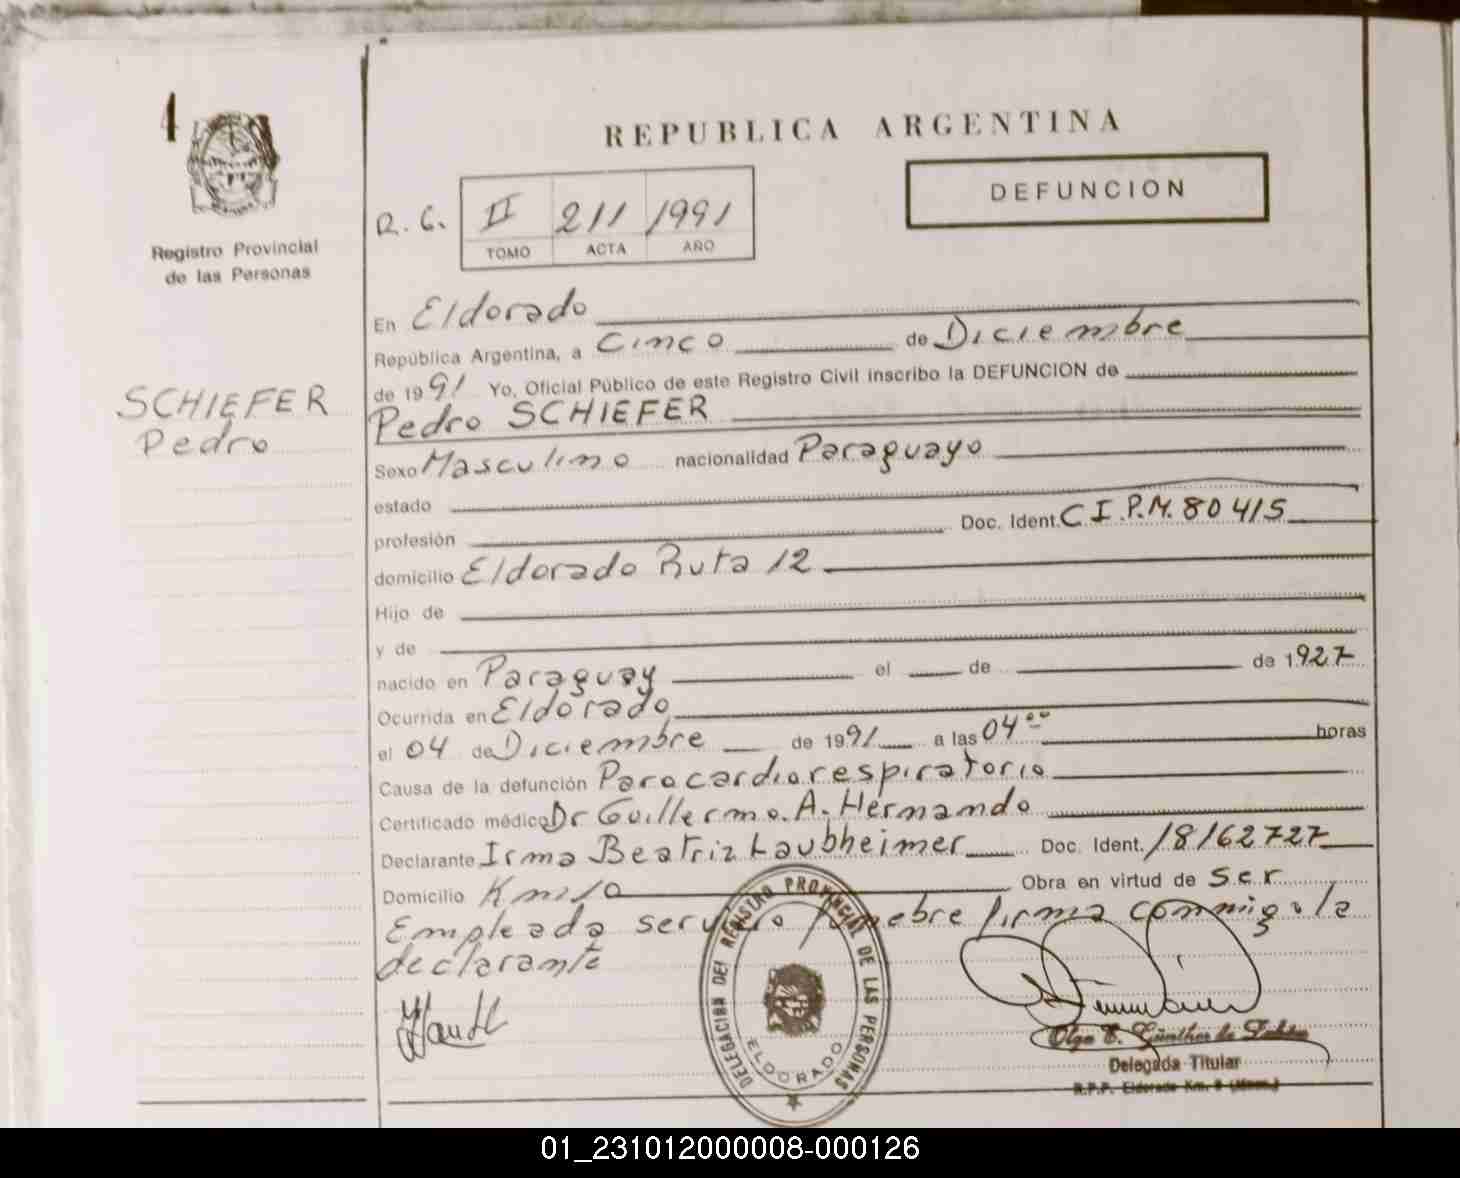 4
REPUBLICA ARGENTINA
DEFUNCION
R. C. II 211 1991
TOMO ACTA AÑO
Registro Provincial
de las Personas
En Eldorado
República Argentina, a Cinco de Diciembre
de 1991 Yo, Oficial Público de este Registro Civil inscribo la DEFUNCION de
SCHIEFER
Pedro
Pedro SCHIEFER
Sexo Masculino nacionalidad Paraguayo
estado
profesión Doc. Ident. C.I.P.M. 80415
domicilio Eldorado Ruta 12
Hijo de
y de
nacido en Paraguay el de de 1927
Ocurrida en Eldorado
el 04 de Diciembre de 1991 a las 04 00 horas
Causa de la defunción Paro cardiorespiratorio
Certificado médico Dr Guillermo. A. Hernando
Declarante Irma Beatriz Laubheimer Doc. Ident. 18162727
Domicilio Km 10 Obra en virtud de ser
Empleada servicio funebre firma conmigo la
declarante
DELEGACION DEL REGISTRO PROVINCIAL DE LAS PERSONAS
ELDORADO
Olga E. Günther de
Delegada Titular
R.P.P. Eldorado Km. 9
01_231012000008-000126